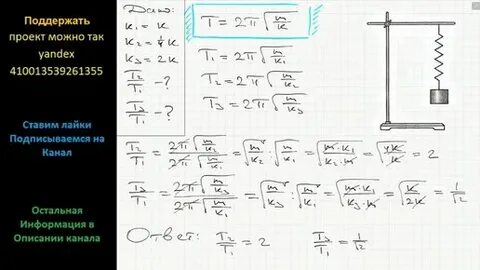 Поддержать
проект можно так
yandex
410013539261355
Ставим лайки
Подписываемся на
Канал
Остальная
Информация в
Описании канала
Дано:
K₁ = K
K₂ = 1/4 K
K₃ = 2K
T₂/T₁ - ?
T₃/T₁ - ?
T = 2π √(m/K)
T₁ = 2π √(m/K₁)
T₂ = 2π √(m/K₂)
T₃ = 2π √(m/K₃)
T₂/T₁ = 2π √(m/K₂) / 2π √(m/K₁) = √(m/K₂ · K₁/m) = √(m·K₁/K₂·m) = √(4K/K) = 2
T₃/T₁ = 2π √(m/K₃) / 2π √(m/K₁) = √(m/K₃ · K₁/m) = √(m·K₁/K₃·m) = √(K/2K) = 1/√2
Ответ: T₂/T₁ = 2 T₃/T₁ = 1/√2